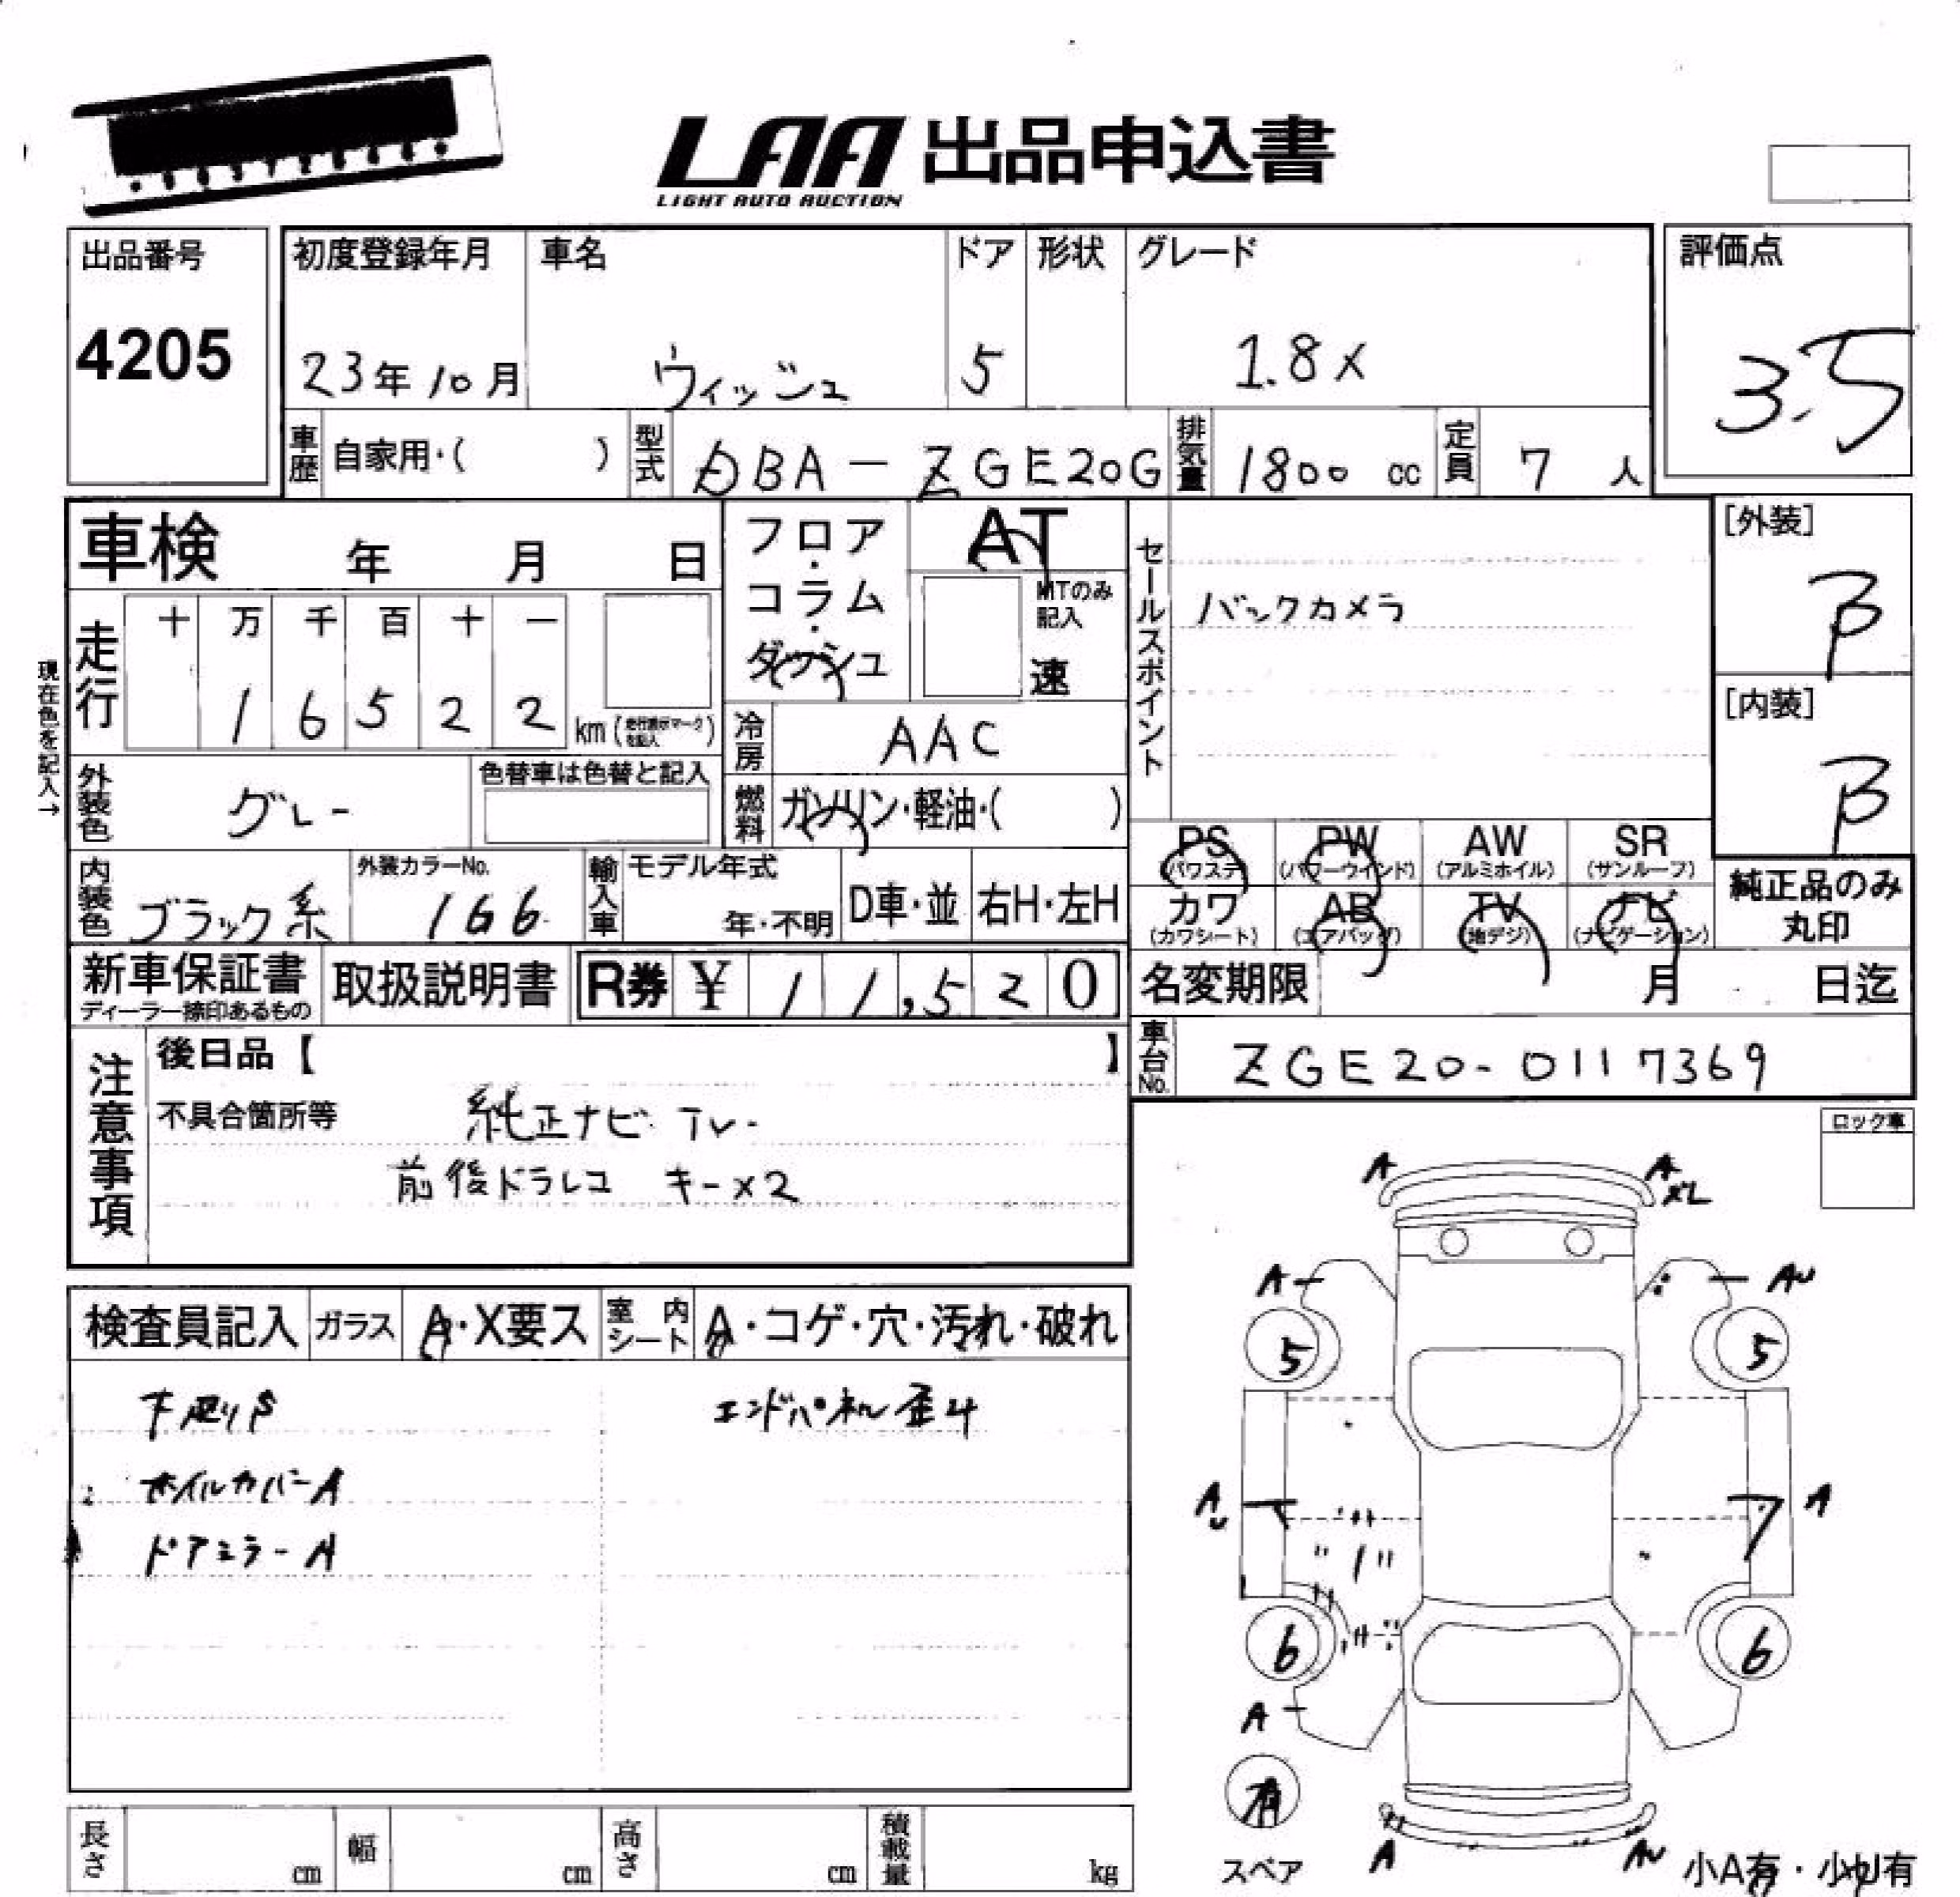 LAA 出品申込書
LIGHT AUTO AUCTION
出品番号
4205
初度登録年月 車名 ドア 形状 グレード
23年10月 ウィッシュ 5 1.8X
評価点
3.5
車歴 自家用・( ) 型式 DBA-ZGE20G 排気量 1800 cc 定員 7 人
車検 年 月 日
フロア・コラム・ダッシュ
AT
MTのみ記入
速
セールスポイント
バックカメラ
[外装]
B
[内装]
B
現在色を記入→
走行 十 万 千 百 十 一
1 6 5 2 2 km (走行表示マークを記入)
冷房 AAC
外装色 グレー 色替車は色替と記入
燃料 ガソリン・軽油・( )
内装色 ブラック系 外装カラーNo. 1G6
輸入車 モデル年式 年・不明 D車・並 右H・左H
PS (パワステ) PW (パワーウインド) AW (アルミホイル) SR (サンルーフ)
カワ (カワシート) AB (エアバッグ) TV (地デジ) ナビ (ナビゲーション)
純正品のみ丸印
新車保証書 ディーラー捺印あるもの 取扱説明書 R券 ¥ 11,520
名変期限 月 日迄
車台No. ZGE20-0117369
注意事項
後日品【 】
不具合箇所等 純正ナビ TV-
前後ドラレコ キー×2
ロック車
検査員記入 ガラス A・X要ス 室内シート A・コゲ・穴・汚れ・破れ
下廻りS エンドパネル歪み
ホイルカバーA
ドアミラーA
A A
XL
A AU
5 5
AU A
6 6
A
有
スペア
A AU
小A有・小U有
長さ cm 幅 cm 高さ cm 積載量 kg